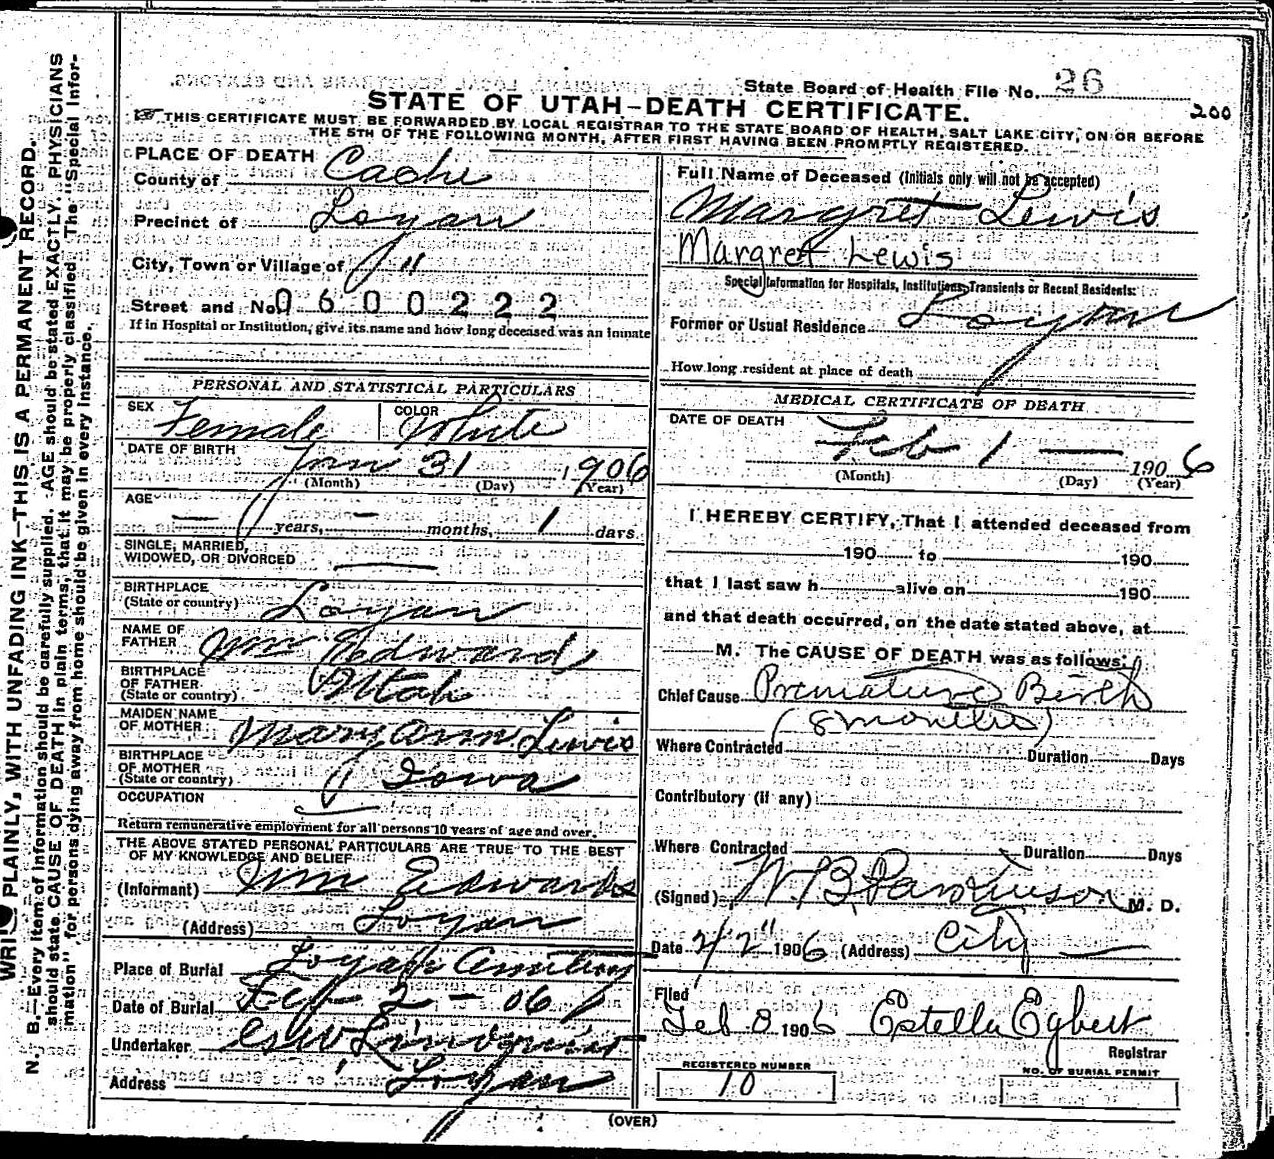 State Board of Health File No. 26
STATE OF UTAH–DEATH CERTIFICATE.
200
THIS CERTIFICATE MUST BE FORWARDED BY LOCAL REGISTRAR TO THE STATE BOARD OF HEALTH, SALT LAKE CITY, ON OR BEFORE
THE 5TH OF THE FOLLOWING MONTH, AFTER FIRST HAVING BEEN PROMPTLY REGISTERED.
PLACE OF DEATH
County of Cache
Precinct of Logan
City, Town or Village of "
Street and No. 0600222
If in Hospital or Institution, give its name and how long deceased was an inmate
PERSONAL AND STATISTICAL PARTICULARS
SEX Female COLOR White
DATE OF BIRTH Jan 31 1906
(Month) (Day) (Year)
AGE — years, — months, 1 days
SINGLE, MARRIED,
WIDOWED, OR DIVORCED —
BIRTHPLACE
(State or country) Logan
NAME OF
FATHER Wm Edwards
BIRTHPLACE
OF FATHER
(State or country) Utah
MAIDEN NAME
OF MOTHER Mary Ann Lewis
BIRTHPLACE
OF MOTHER
(State or country) Iowa
OCCUPATION
Return remunerative employment for all persons 10 years of age and over.
THE ABOVE STATED PERSONAL PARTICULARS ARE TRUE TO THE BEST
OF MY KNOWLEDGE AND BELIEF
(Informant) Wm Edwards
(Address) Logan
Place of Burial Logan Cemetery
Date of Burial Feb – 2 – 06
Undertaker Lindquist
Address Logan
Full Name of Deceased (Initials only will not be accepted)
Margret Lewis
Margret Lewis
Special Information for Hospitals, Institutions, Transients or Recent Residents:
Former or Usual Residence Logan
How long resident at place of death
MEDICAL CERTIFICATE OF DEATH
DATE OF DEATH
Feb 1 — 1906
(Month) (Day) (Year)
I HEREBY CERTIFY, That I attended deceased from
190 to 190
that I last saw h alive on 190
and that death occurred, on the date stated above, at
M. The CAUSE OF DEATH was as follows:
Chief Cause Premature Birth
(8 months)
Where Contracted Duration Days
Contributory (if any)
Where Contracted Duration Days
(Signed) W. B. Parkinson M. D.
Date 2/2" 1906 (Address) City —
Filed
Feb 8 1906 Estella Egbert
Registrar
REGISTERED NUMBER
10
NO. OF BURIAL PERMIT
(OVER)
WRITE PLAINLY, WITH UNFADING INK—THIS IS A PERMANENT RECORD.
N. B.—Every item of information should be carefully supplied. AGE should be stated EXACTLY. PHYSICIANS
should state CAUSE OF DEATH in plain terms, that it may be properly classified. The "Special Infor-
mation" for persons dying away from home should be given in every instance.